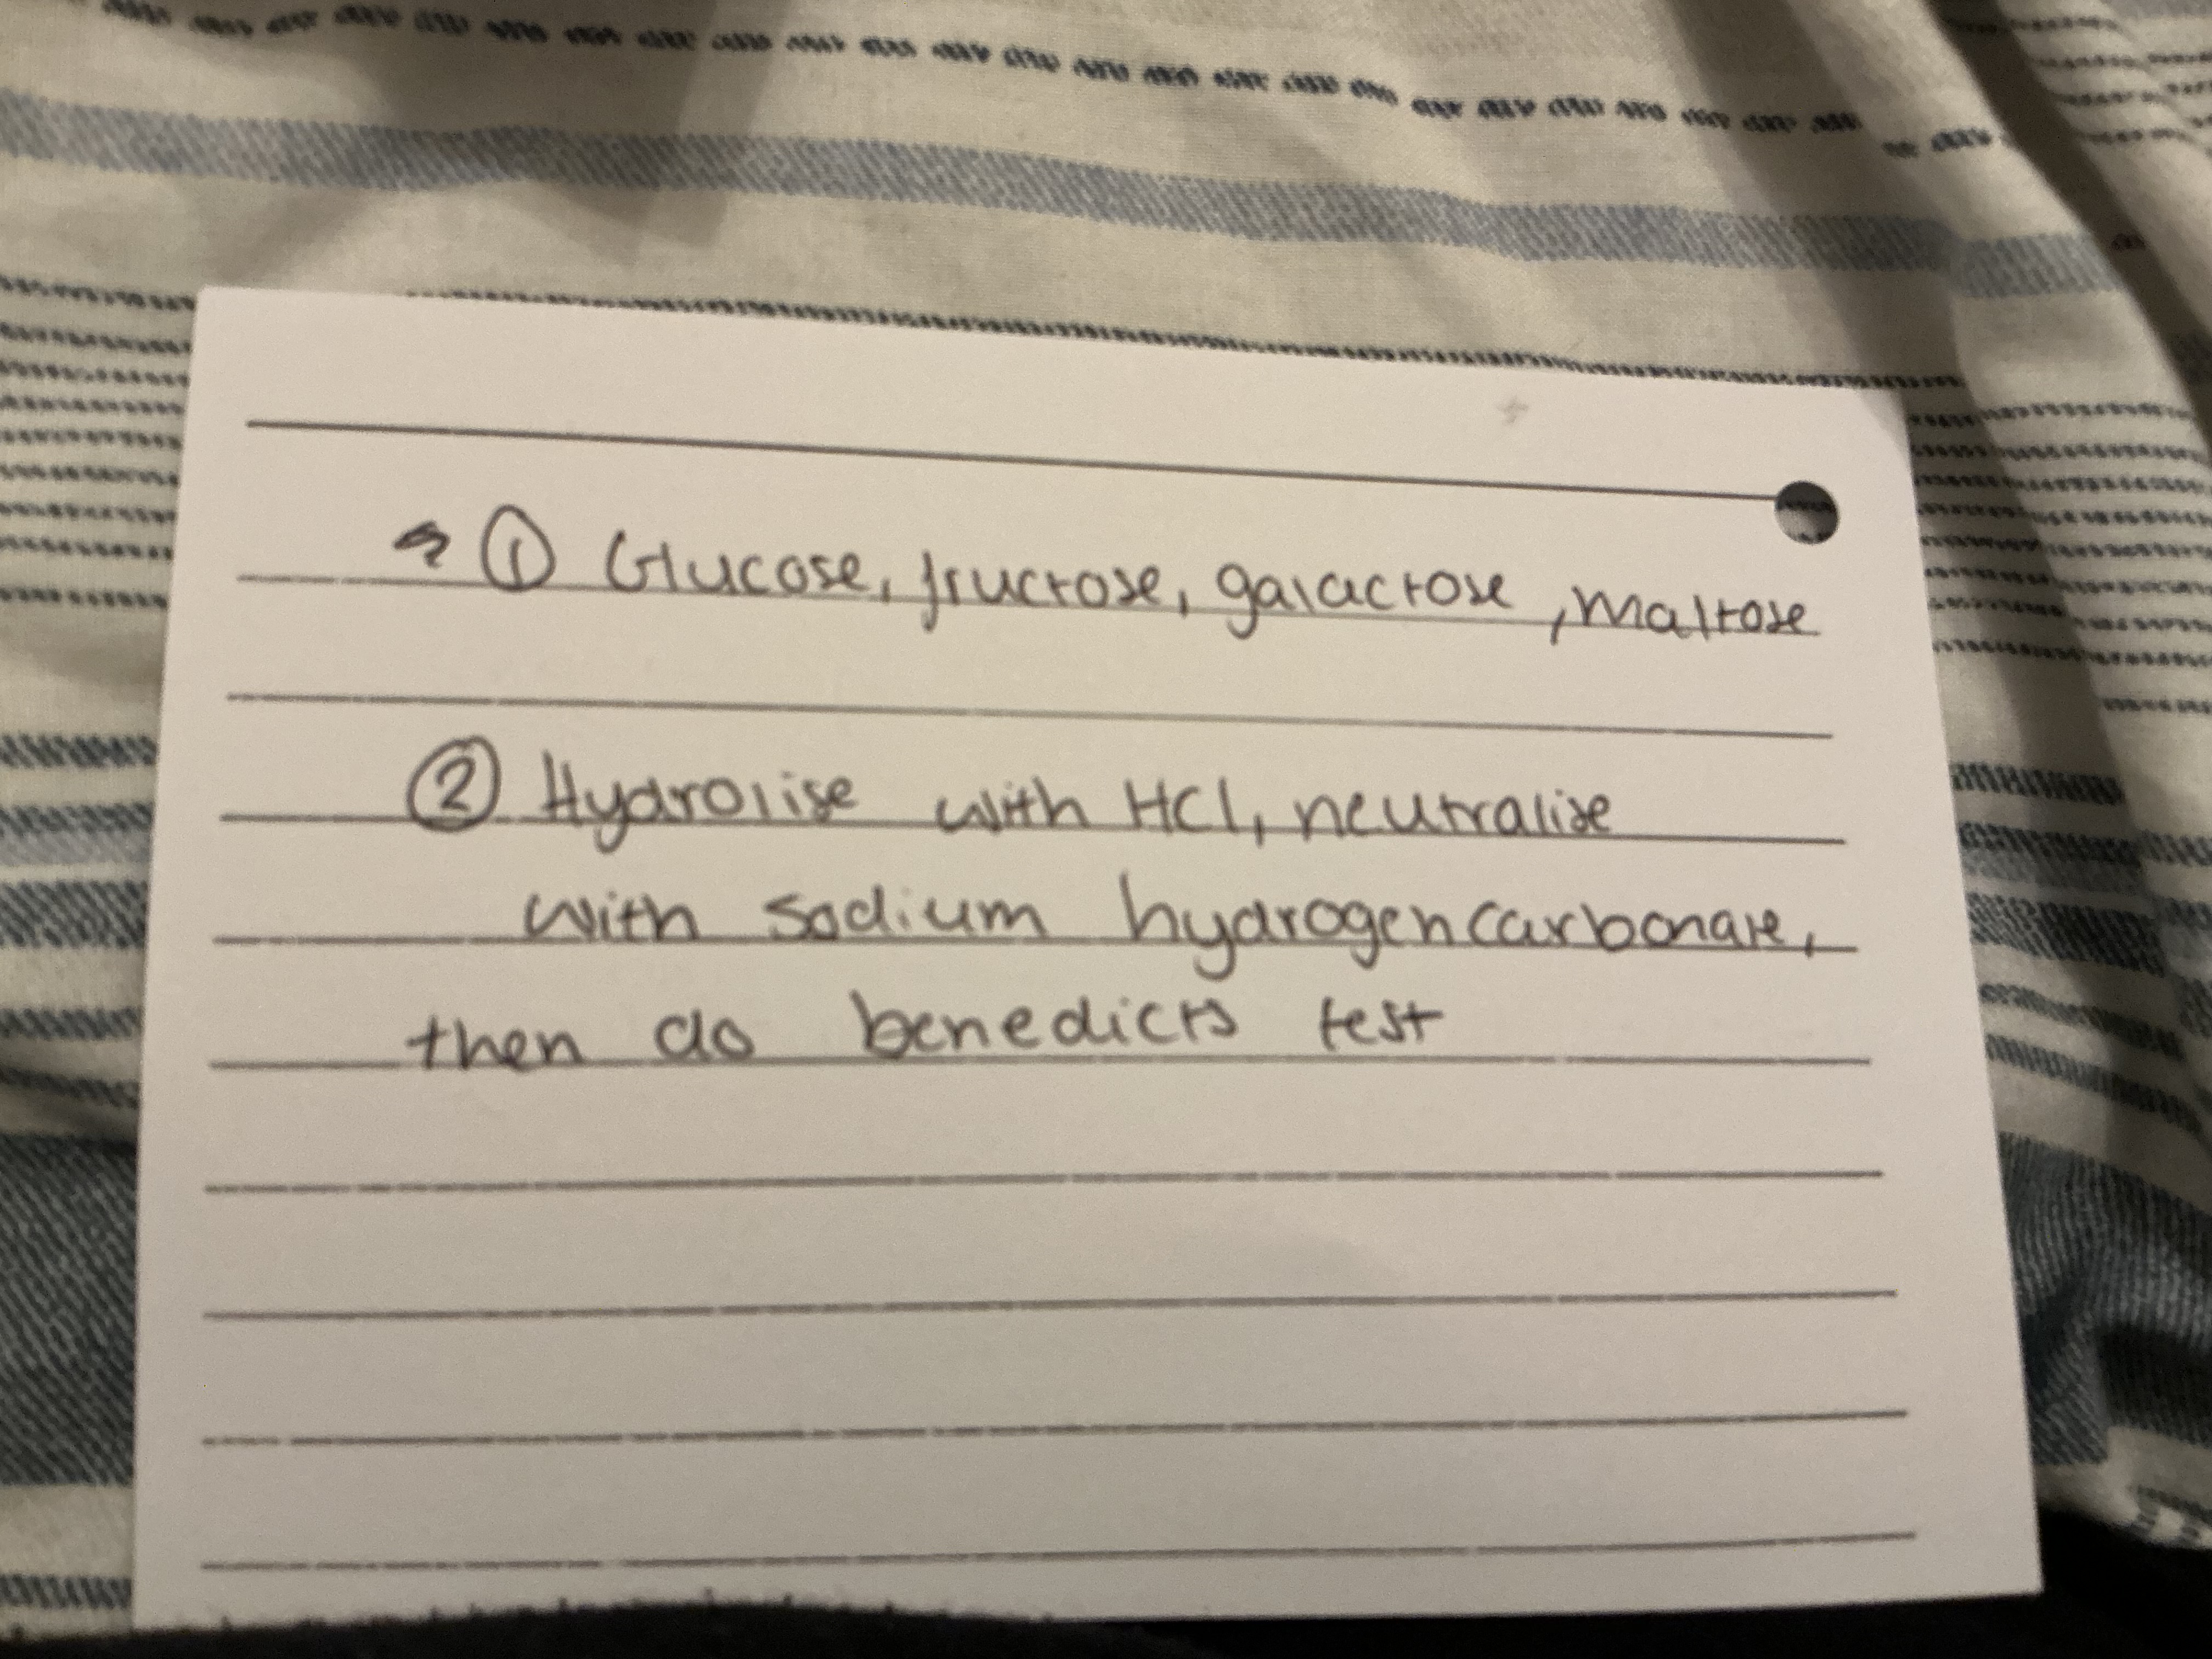 ① Glucose, fructose, galactose, maltose
② Hydrolise with HCl, neutralise
with sodium hydrogencarbonate,
then do benedicts test